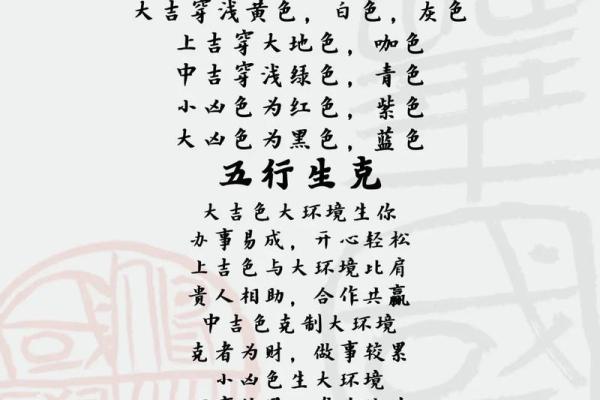 大吉穿浅黄色，白色，灰色
上吉穿大地色，咖色
中吉穿浅绿色，青色
小凶色为红色，紫色
大凶色为黑色，蓝色
五行生克
大吉色大环境生你
办事易成，开心轻松
上吉色与大环境比肩
贵人相助，合作共赢
中吉色克制大环境
克者为财，做事较累
小凶色生大环境